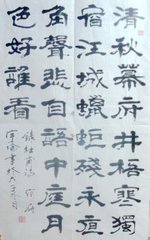 清秋幕府井梧寒獨
宿江城蠟炬殘永亱
角聲悲自語中庭月
色好誰看
錄杜甫詩 宿府